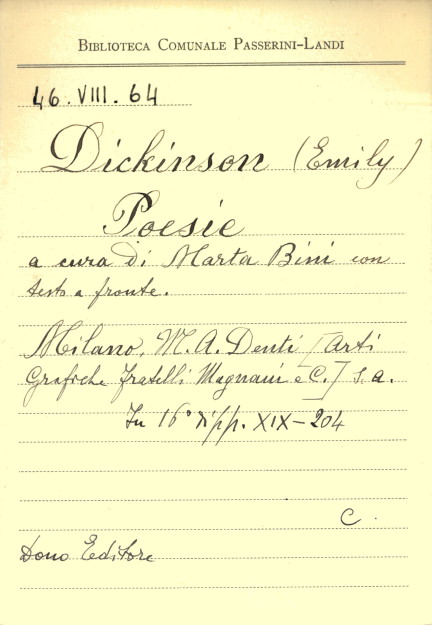 BIBLIOTECA COMUNALE PASSERINI-LANDI
46.VIII.64
Dickinson (Emily)
Poesie
a cura di Marta Bini con
testo a fronte.
Milano, M. A. Denti [Arti
Grafiche fratelli Magnani e C.] s. a.
In 16° di pp. XIX-204
C.
Dono Editore